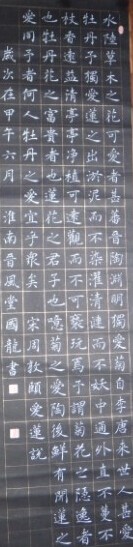 水陸草木之花可愛者甚蕃晉陶淵明獨愛菊自李唐來世人甚愛
牡丹予獨愛蓮之出淤泥而不染濯清漣而不妖中通外直不蔓不
枝香遠益清亭亭淨植可遠觀而不可褻玩焉予謂菊花之隱逸者
也牡丹花之富貴者也蓮花之君子者也噫菊之愛陶後鮮有聞蓮之
愛同予者何人牡丹之愛宜乎衆矣 宋周敦頤愛蓮說
歲次在甲午六月淮南晉風堂國龍書